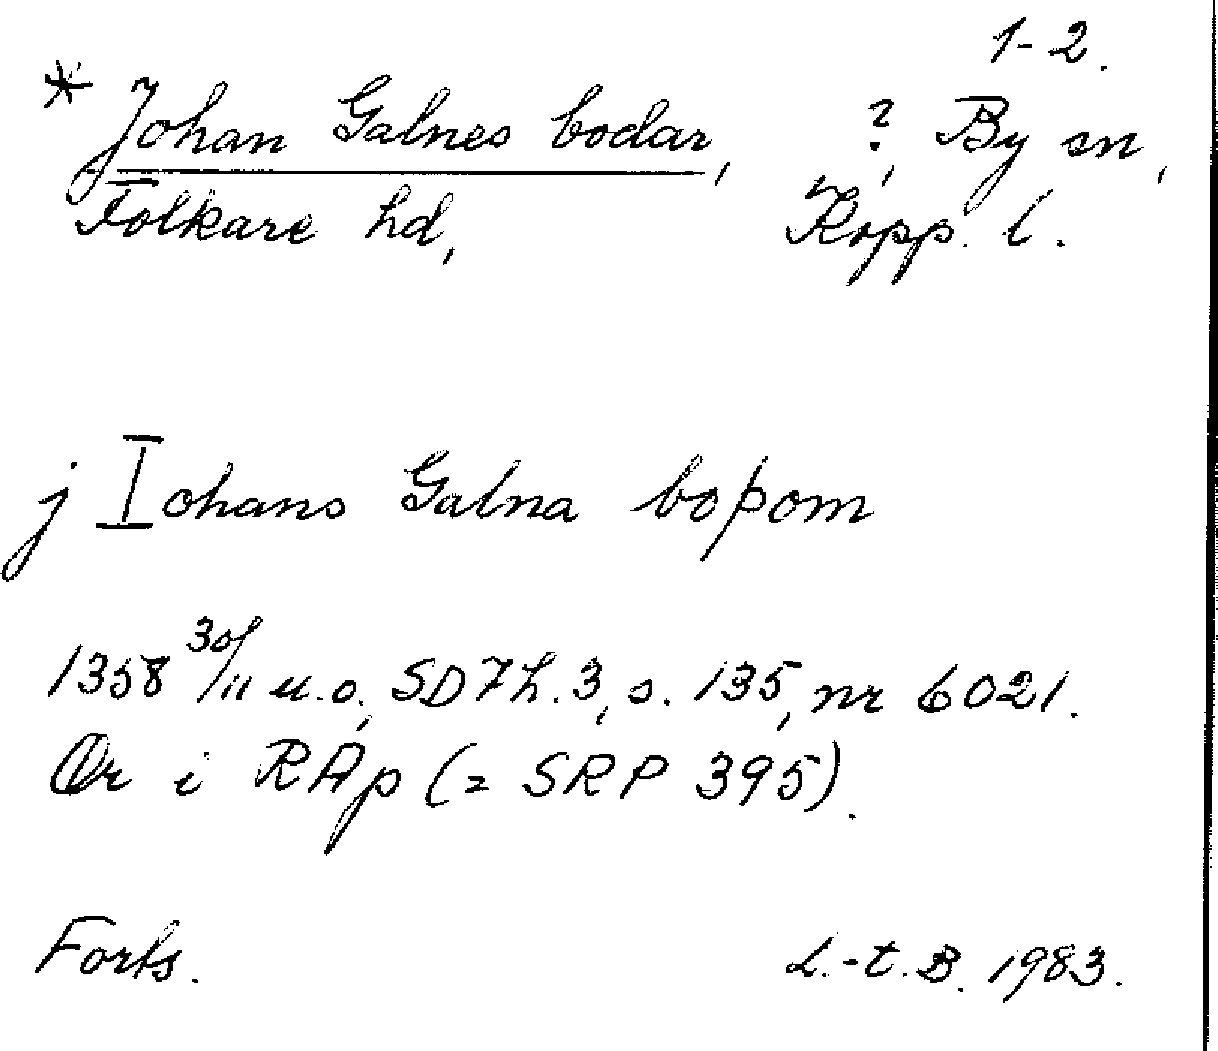 1-2.
* Johan Galnes bodar, ?, By sn,
Folkare hd, Kopp. l.
j Iohans Galna boþom
1358 30/11 u.o., SD 7 h. 3, s. 135, nr 6021.
Or i RAp (= SRP 395).
Forts. L.-t. B. 1983.